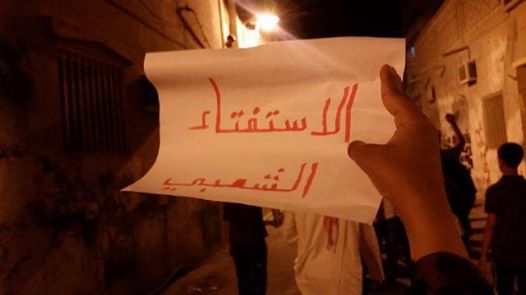 الاستفتاء
الشعبي